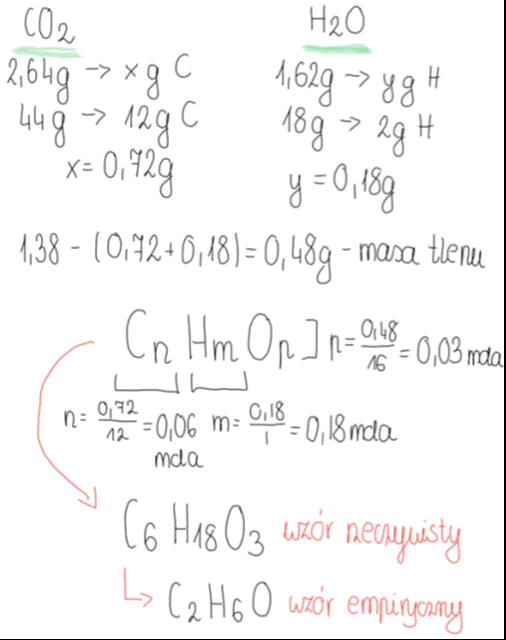 CO2
H2O
2,64g → x g C
1,62g → y g H
44g → 12g C
18g → 2g H
x = 0,72g
y = 0,18g
1,38 - (0,72+0,18) = 0,48g - masa tlenu
Cn Hm Op ] n = 0,48/16 = 0,03 mola
n = 0,72/12 = 0,06 mola m = 0,18/1 = 0,18 mola
C6 H18 O3 wzór rzeczywisty
C2 H6 O wzór empiryczny